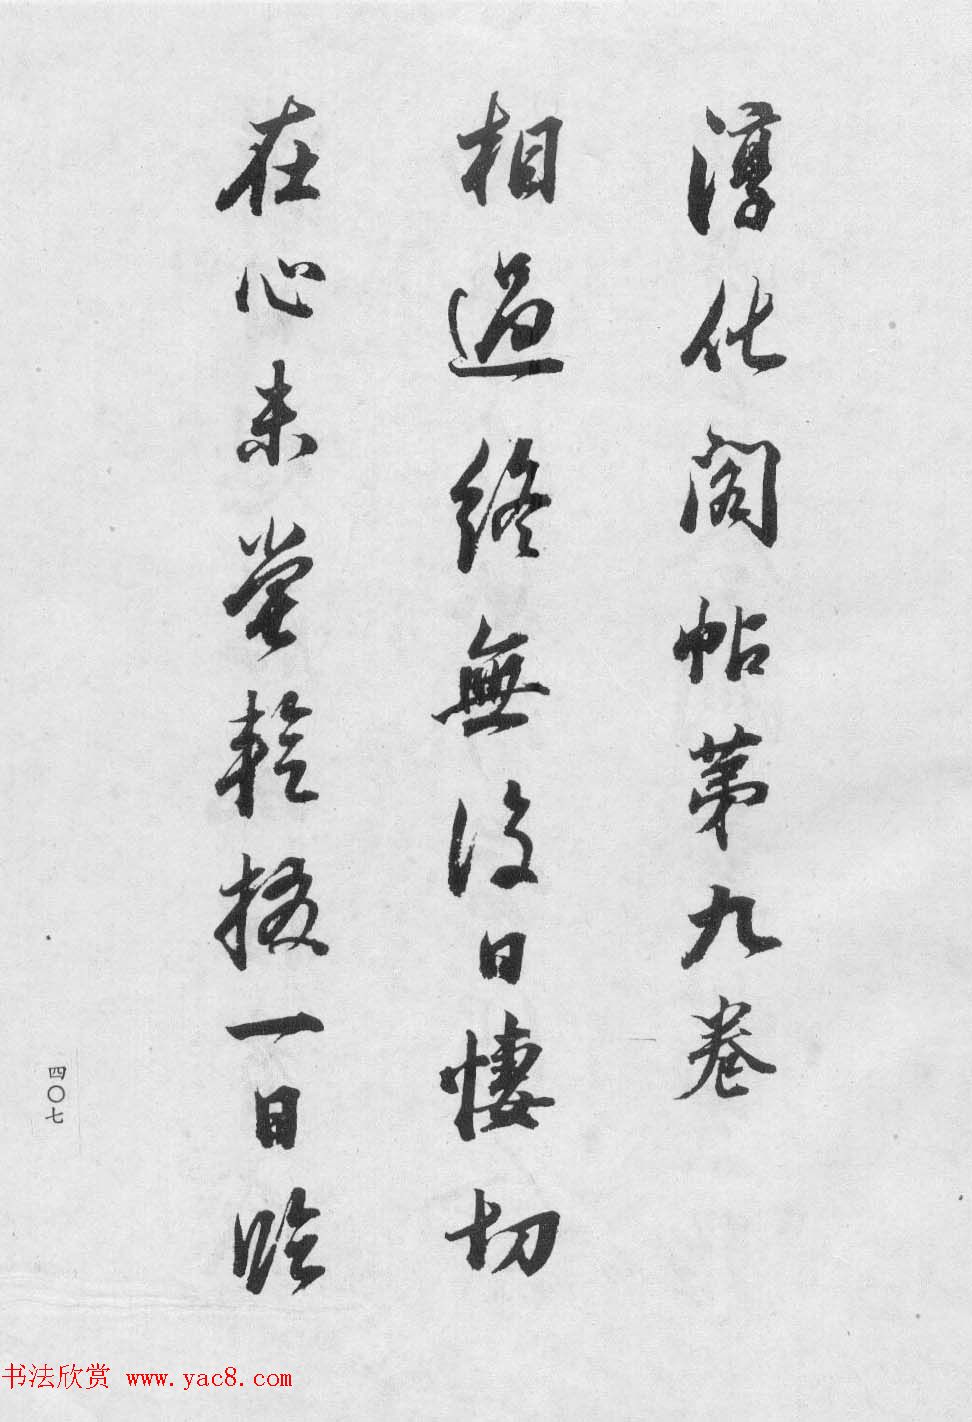 淳化阁帖第九卷
相過終無復日悽切
在心未嘗輕掇一日臨
四〇七
书法欣赏 www.yac8.com